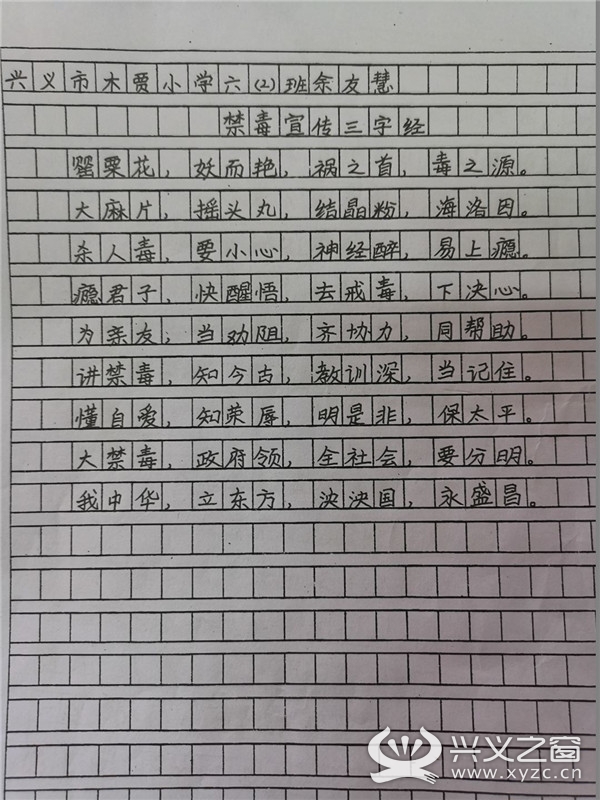 兴义市木贾小学六(2)班余友慧
禁毒宣传三字经
罂粟花，妖而艳，祸之首，毒之源。
大麻片，摇头丸，结晶粉，海洛因。
杀人毒，要小心，神经醉，易上瘾。
瘾君子，快醒悟，去戒毒，下决心。
为亲友，当劝阻，齐协力，同帮助。
讲禁毒，知今古，教训深，当记住。
懂自爱，知荣辱，明是非，保太平。
大禁毒，政府领，全社会，要分明。
我中华，立东方，泱泱国，永盛昌。
兴义之窗
www.xyzc.cn